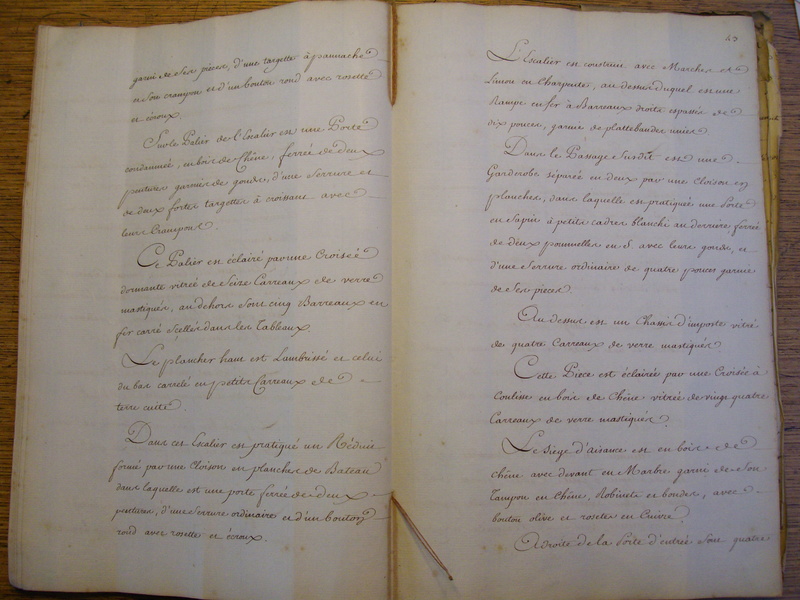 garni de ses pieces, d'une targette à pannache
et son crampon et d'un bouton rond avec rosette
et écroux.
Sur le Palier de l'Escalier est une Porte
condamnée, en bois de Chêne, ferrée de deux
pentures garnies de gonds, d'une Serrure et
de deux fortes targettes à croissans avec
leurs Crampons.
Ce Palier est éclairé par une Croisée
dormante vitrée de Seize Carreaux de verre
mastiqués, au dehors sont cinq Barreaux en
fer carré Scellés dans les Tableaux.
Le plancher haut est Lambrissé et celui
du bas carrelé en petits Carreaux de
terre cuite.
Dans cet Escalier est pratiqué un Réduit
formé par une Cloison en planches de Bateau
dans laquelle est une porte ferrée de deux
pentures, d'une Serrure ordinaire et d'un bouton
rond avec rosette et écroux.
43
L'Escalier est construit avec Marches et
Limon en Charpente, au dessus duquel est une
Rampe en fer à Barreaux droits espassés de
dix pouces, garnie de plattebandes unies
Dans le Passage Susdit est une
Garderobe séparée en deux par une Cloison en
planches, dans laquelle est pratiquée une Porte
en Sapin à petits cadres blanchi au derriere, ferrée
de deux poumelles en S. avec leurs gonds, et
d'une Serrure ordinaire de quatre pouces garnie
de ses pieces.
Au dessus est un Chassis d'imposte vitré
de quatre Carreaux de verre mastiqués.
Cette Piece est éclairée par une Croisée à
Coulisse en bois de Chêne vitrée de vingt quatre
Carreaux de verre mastiqués.
Le Siege d'aisance est en bois de
chêne avec devant en Marbre garni de son
Tampon en Chêne, Robinets et bondes, avec
bouton olive et rosetes en Cuivre.
A droite de la Porte d'entrée sont quatre